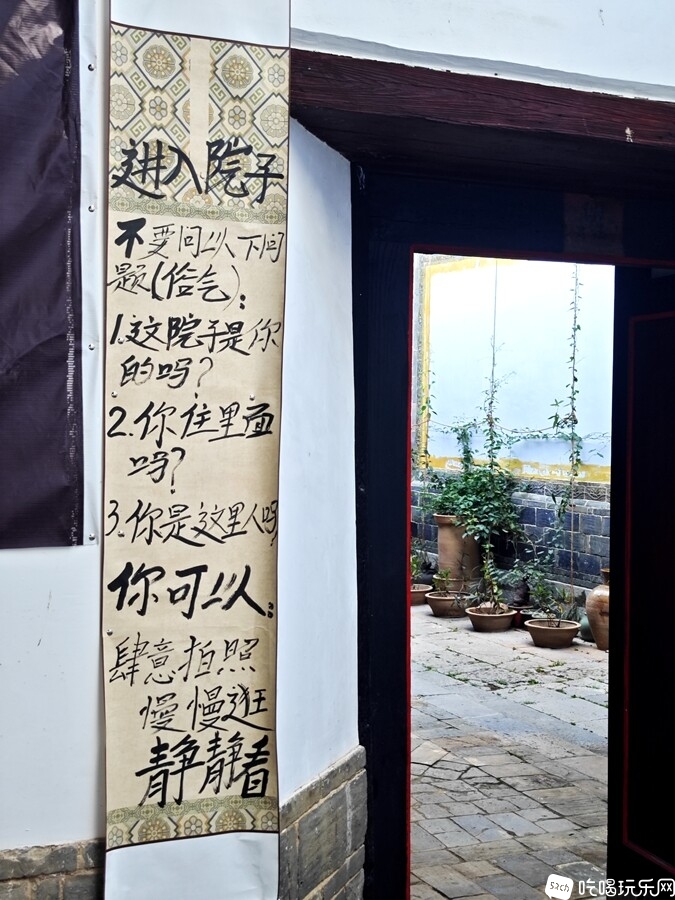 进入院子
不要问以下问
题(俗气):
1.这院子是你
的吗?
2.你住里面
吗?
3.你是这里人吗?
你可以:
肆意拍照
慢慢逛
静静看
52ch 吃喝玩乐网